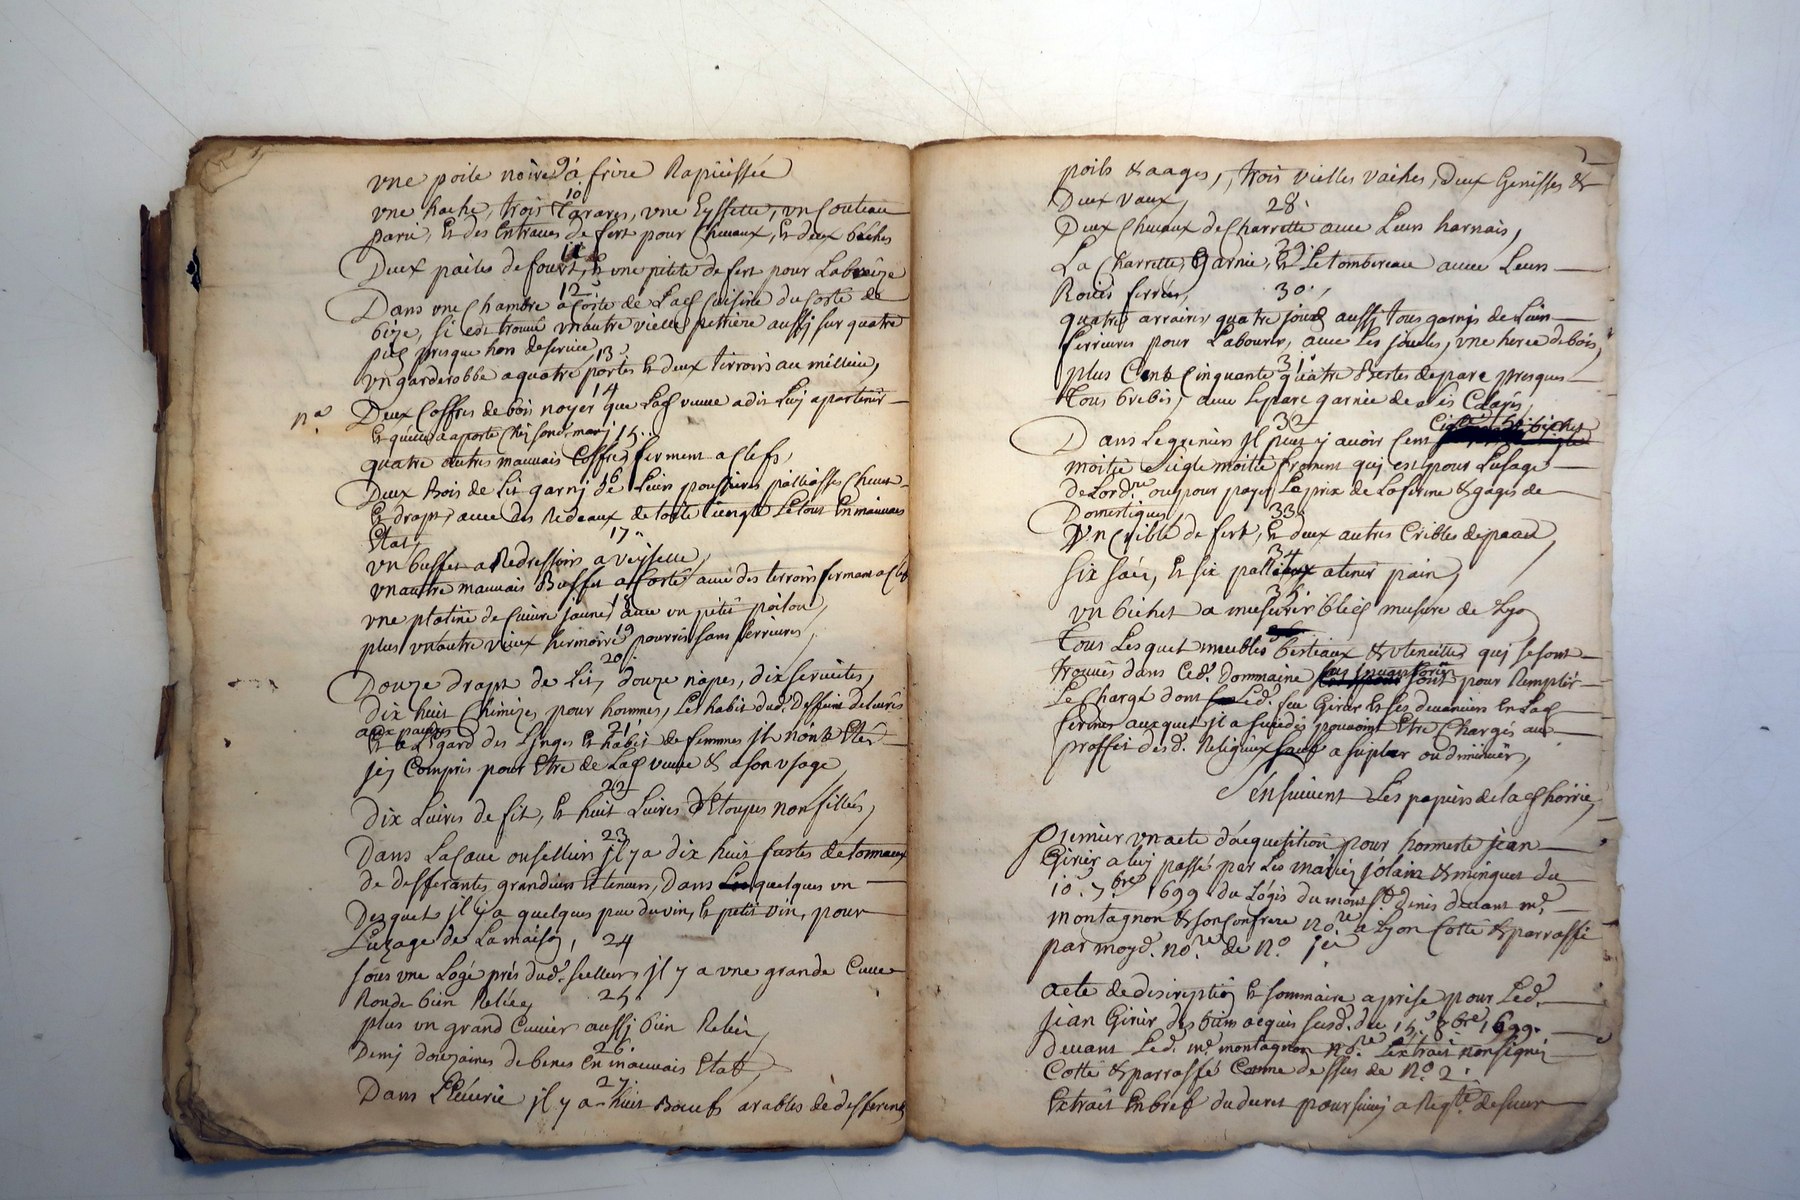 une poile noire à frire Rapiessée
9
10
une hache, trois taraires, une Eyssette, un Couteau
paru, Et des Entraues de fert pour Cheuaux, Et deux bêches
11
Deux pailes de fourt, Et une petite de fert pour La breize
12
Dans une Chambre a Costé de Lad Cuisine du Costé de
bize, si est trouué un autre vielle pettriere aussj sur quatre
pieds presque hors de seruice,
13
un garderobbe a quatre portes Et deux tirroirs au milliieu,
14
na
Deux Coffres de bois noyer que Lad veuue a dit Luj apartenir
Et queue a aporté Chez son d. marj
15
quatre autres mauuais Coffres ferment a Clefs,
16
Deux bois de Lit garnj de Leurs poussieres palliasses Cheuet
Et drapt, auec des Redeaux de toile Le tout En mauuais
Etat,
17
un buffet a Redressoirs a veysselle,
un autre mauuais Buffet a Costé auec des terroirs fermant a Clef
18
une platine de Cuiure jaune, auec un petit poilon,
19
plus un autre vieux hermoire pourris sans serrieures,
20
Douze drapt de Lit, douze napes, dix seruiettes,
dix huit Chimizes pour hommes, Les habit dud. Deffunt delaissés
aux pauures
21
Et a L'Egard des Linges Et habit de femmes jl n'ont Etés
jcy Compris pour Etre de Lad veuue & a son usage
22
Dix Liures de fil, Et huit Liures d'Etoupes non fillés,
23
Dans La Caue ou sellier jl y a dix huit fustes de tonneaux
de defferantes grandeurs Et teneurs, Dans quelques un
Desquet jl y a quelques peu du vin, Et petit vin, pour
L'uzage de La maison,
24
sous une Logé prés dud. sellier, jl y a une grande Cuue
Ronde bien Reliée,
25
plus un grand Cuuier aussj bien Relier,
26
Demj douzaines de benes En mauuais Etat,
27
Dans L'Ecuirie jl y a huit Bœufs arables de defferents
poils & aages, trois vielles vaches, Deux Genisses &
Deux vaux,
28
Deux Cheuaux de Charrette auec Leurs harnais,
29
La Charrette Garnie, Et Le tombereau auec Leurs
Roües ferrées,
30
quatre arraires quatre joug aussj tous garnis de Leurs
ferrieures pour Labourer, auec Les jouclés, une herce de bois,
31
plus Cent Cinquante quatre Bestes de parc presques
tous brebis, auec Le parc garnie de
32
Dans Le grenier jl peut y auoir Cent
moitié seigle moitié froment quj est pour L'usage
de Lord.re ou pour payer Le prix de La ferme & gages de
Domestiques,
33
un Crible de fert, Et deux autres Cribles de peau,
34
six sacs, Et six a tenir pain,
35
un bichet a mesurer bled mesure de Lyo
tous Lesquet meubles bestiaux & utencilles quj se sont
trouués dans Ced. Dommaine sont pour Remplir
Le Chargé dont Led. feu Girier Et ses deuanciers En Lad
fermes auxquet jl a succedés pouuoint Etre Chargés au
proffit desd. Religieux sauf a supler ou diminuer,
S'ensuiuent Les papiers de lad hoirrie,
premier un acte d'acquesition pour honneste jean
Girier a luj passé par Les mariés jolain & minguet du
10. 7bre 1699 du Logis du mont St Denis deuant me.
montagnon & son Confrere no.re a Lyon Cotté & parraffé
par moyd. no.re de No. jer
acte de discription Et sommaire a prise pour Led.
jean Girier des biens acquis susd. du 15. 8bre 1699.
deuant Led. me. montagnon no.re L'extrait non signé
Cotté & parraffé Comme dessus de No. 2.
Extrait En bref du decret poursuiuj a Reqte. de sieur